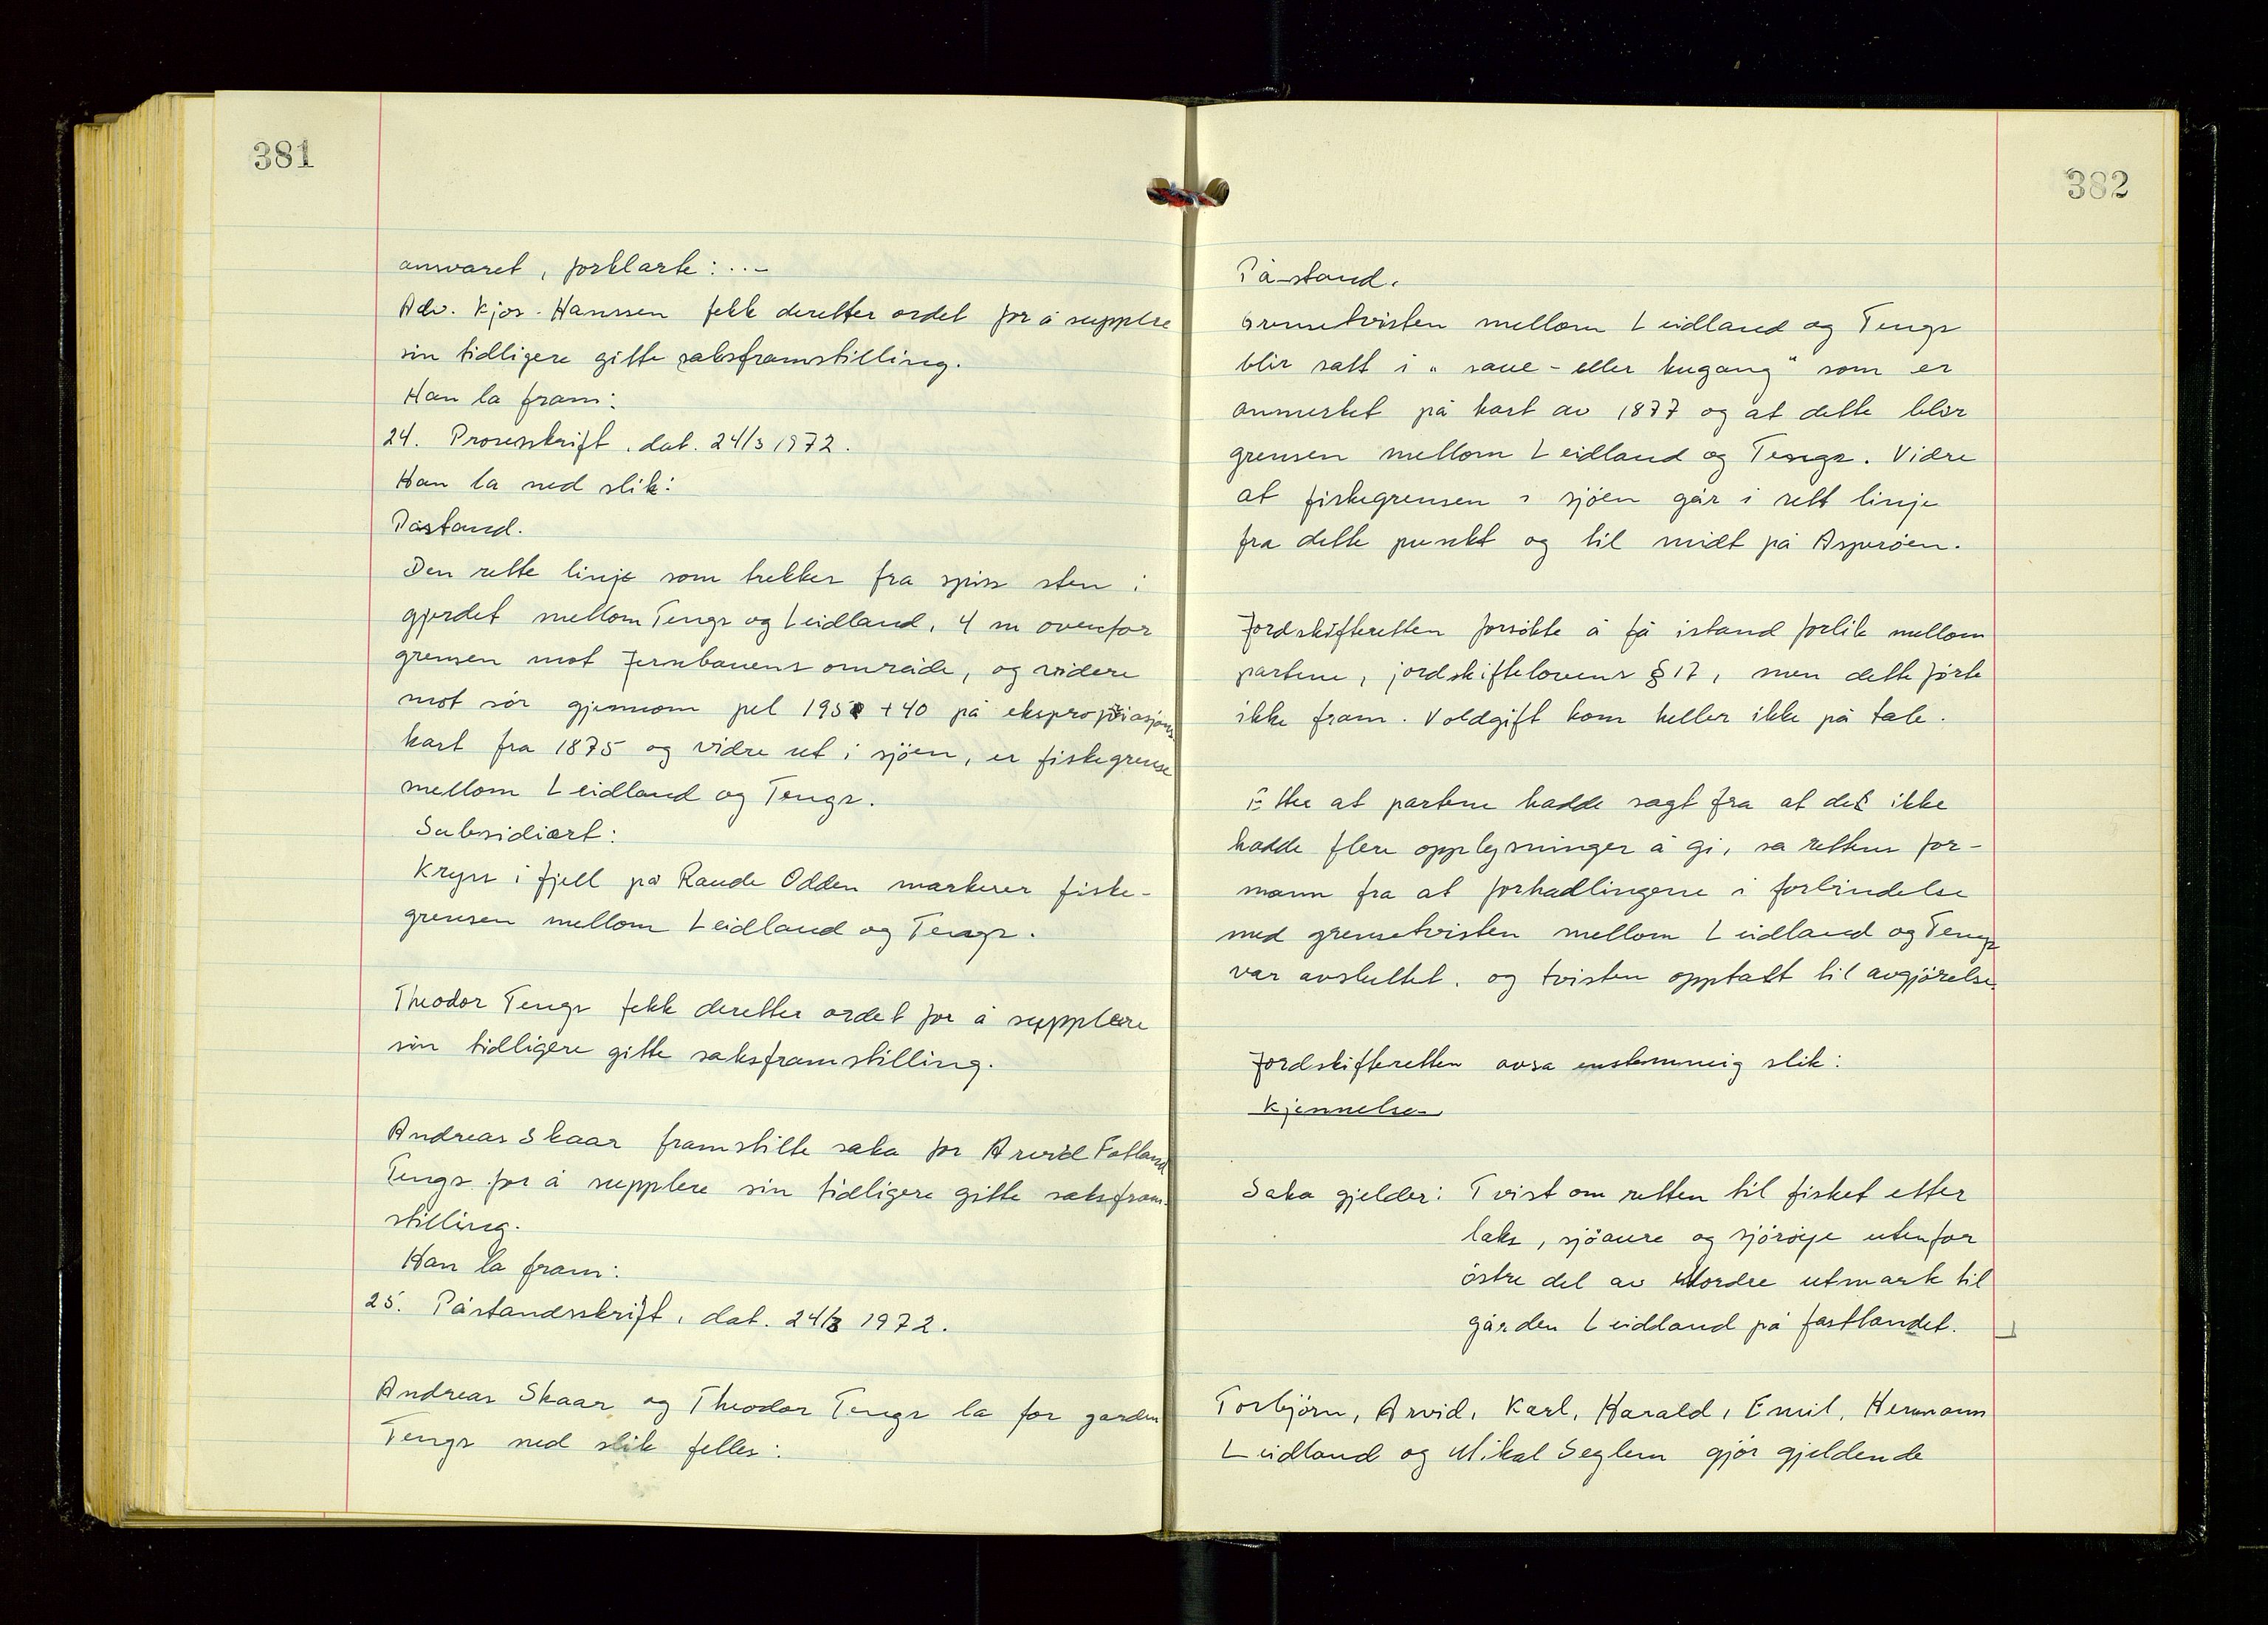 381
ansvaret, forklarte: ..-
Adv. Kjos-Hanssen fekk deretter ordet for å supplere
sin tidligere gitte saksframstilling.
Han la fram:
24. Prosesskrift, dat. 24/3 1972.
Han la ned slik:
Påstand.
Den rette linje som trekker fra spiss sten i
gjerdet mellom Tengs og Leidland, 4 m ovenfor
grensen mot Jernbanens område, og videre
mot sör gjennom pel 1958 + 40 på ekspropriasjons
kart fra 1875 og vidre ut i sjöen, er fiskegrense
mellom Leidland og Tengs.
Subsidiært:
Kryss i fjell på Raude Odden markerer fiske-
grensen mellom Leidland og Tengs.
Theodor Tengs fekk deretter ordet for å supplere
sin tidligere gitte saksframstilling.
Andreas Skaar framstilte saka for Arvid Fotland
Tengs for å supplere sin tidligere gitte saksfram-
stilling.
Han la fram:
25. Påstandsskrift, dat. 24/3 1972.
Andreas Skaar og Theodor Tengs la for garden
Tengs ned slik felles:
382
Påstand.
Grensetvisten mellom Leidland og Tengs
blir satt i "saue- eller kugang" som er
anmerket på kart av 1877 og at dette blir
grensen mellom Leidland og Tengs. Vidre
at fiskegrensen i sjöen går i rett linje
fra dette punkt og til midt på Asperöen.
Jordskifteretten forsökte å få istand forlik mellom
partene, jordskiftelovens § 17, men dette förte
ikke fram. Voldgift kom heller ikke på tale.
Etter at partene hadde sagt fra at det ikke
hadde flere opplysninger å gi, sa rettens for-
mann fra at forhadlingene i forbindelse
med grensetvisten mellom Leidland og Tengs
var avsluttet, og tvisten opptatt til avgjörelse.
Jordskifteretten avsa enstemmig slik:
Kjennelse.
Saka gjelder: Tvist om retten til fisket etter
laks, sjöaure og sjöröye utenfor
östre del av Nordre utmark til
gården Leidland på fastlandet.
Torbjörn, Arvid, Karl, Harald, Emil, Hermann
Leidland og Mikal Seglem gjör gjeldende